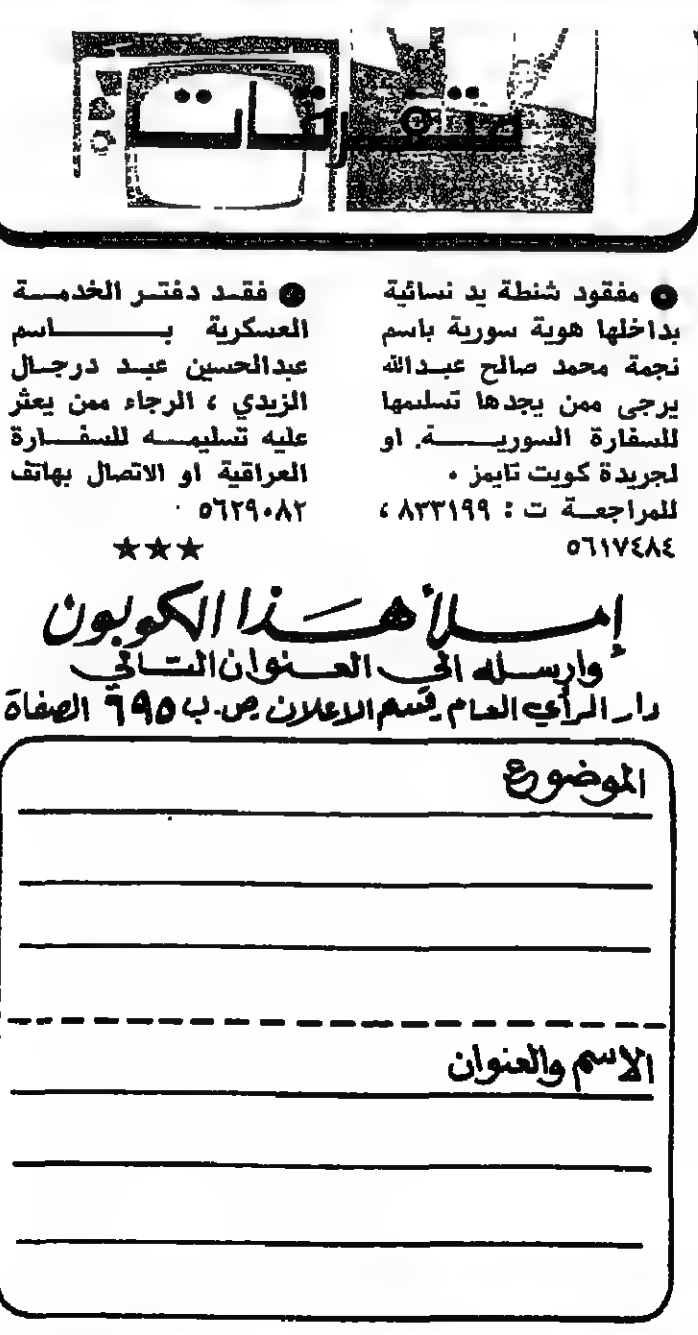 متفرقات
● مفقود شنطة يد نسائية
بداخلها هوية سورية باسم
نجمة محمد صالح عبدالله
يرجى ممن يجدها تسليمها
للسفارة السورية. او
لجريدة كويت تايمز .
للمراجعة ت : ٨٣٣١٩٩ ،
٥٦١٧٤٨٤
● فقد دفتر الخدمة
العسكرية باسم
عبدالحسين عبد درجال
الزيدي ، الرجاء ممن يعثر
عليه تسليمه للسفارة
العراقية او الاتصال بهاتف
٥٦٢٩٠٨٢ .
★★★
إملأ هذا الكوبون
وارسله الى العنوان التالي
دار الرأي العام قسم الاعلان ص.ب ٦٩٥ الصفاة
الموضوع
الاسم والعنوان